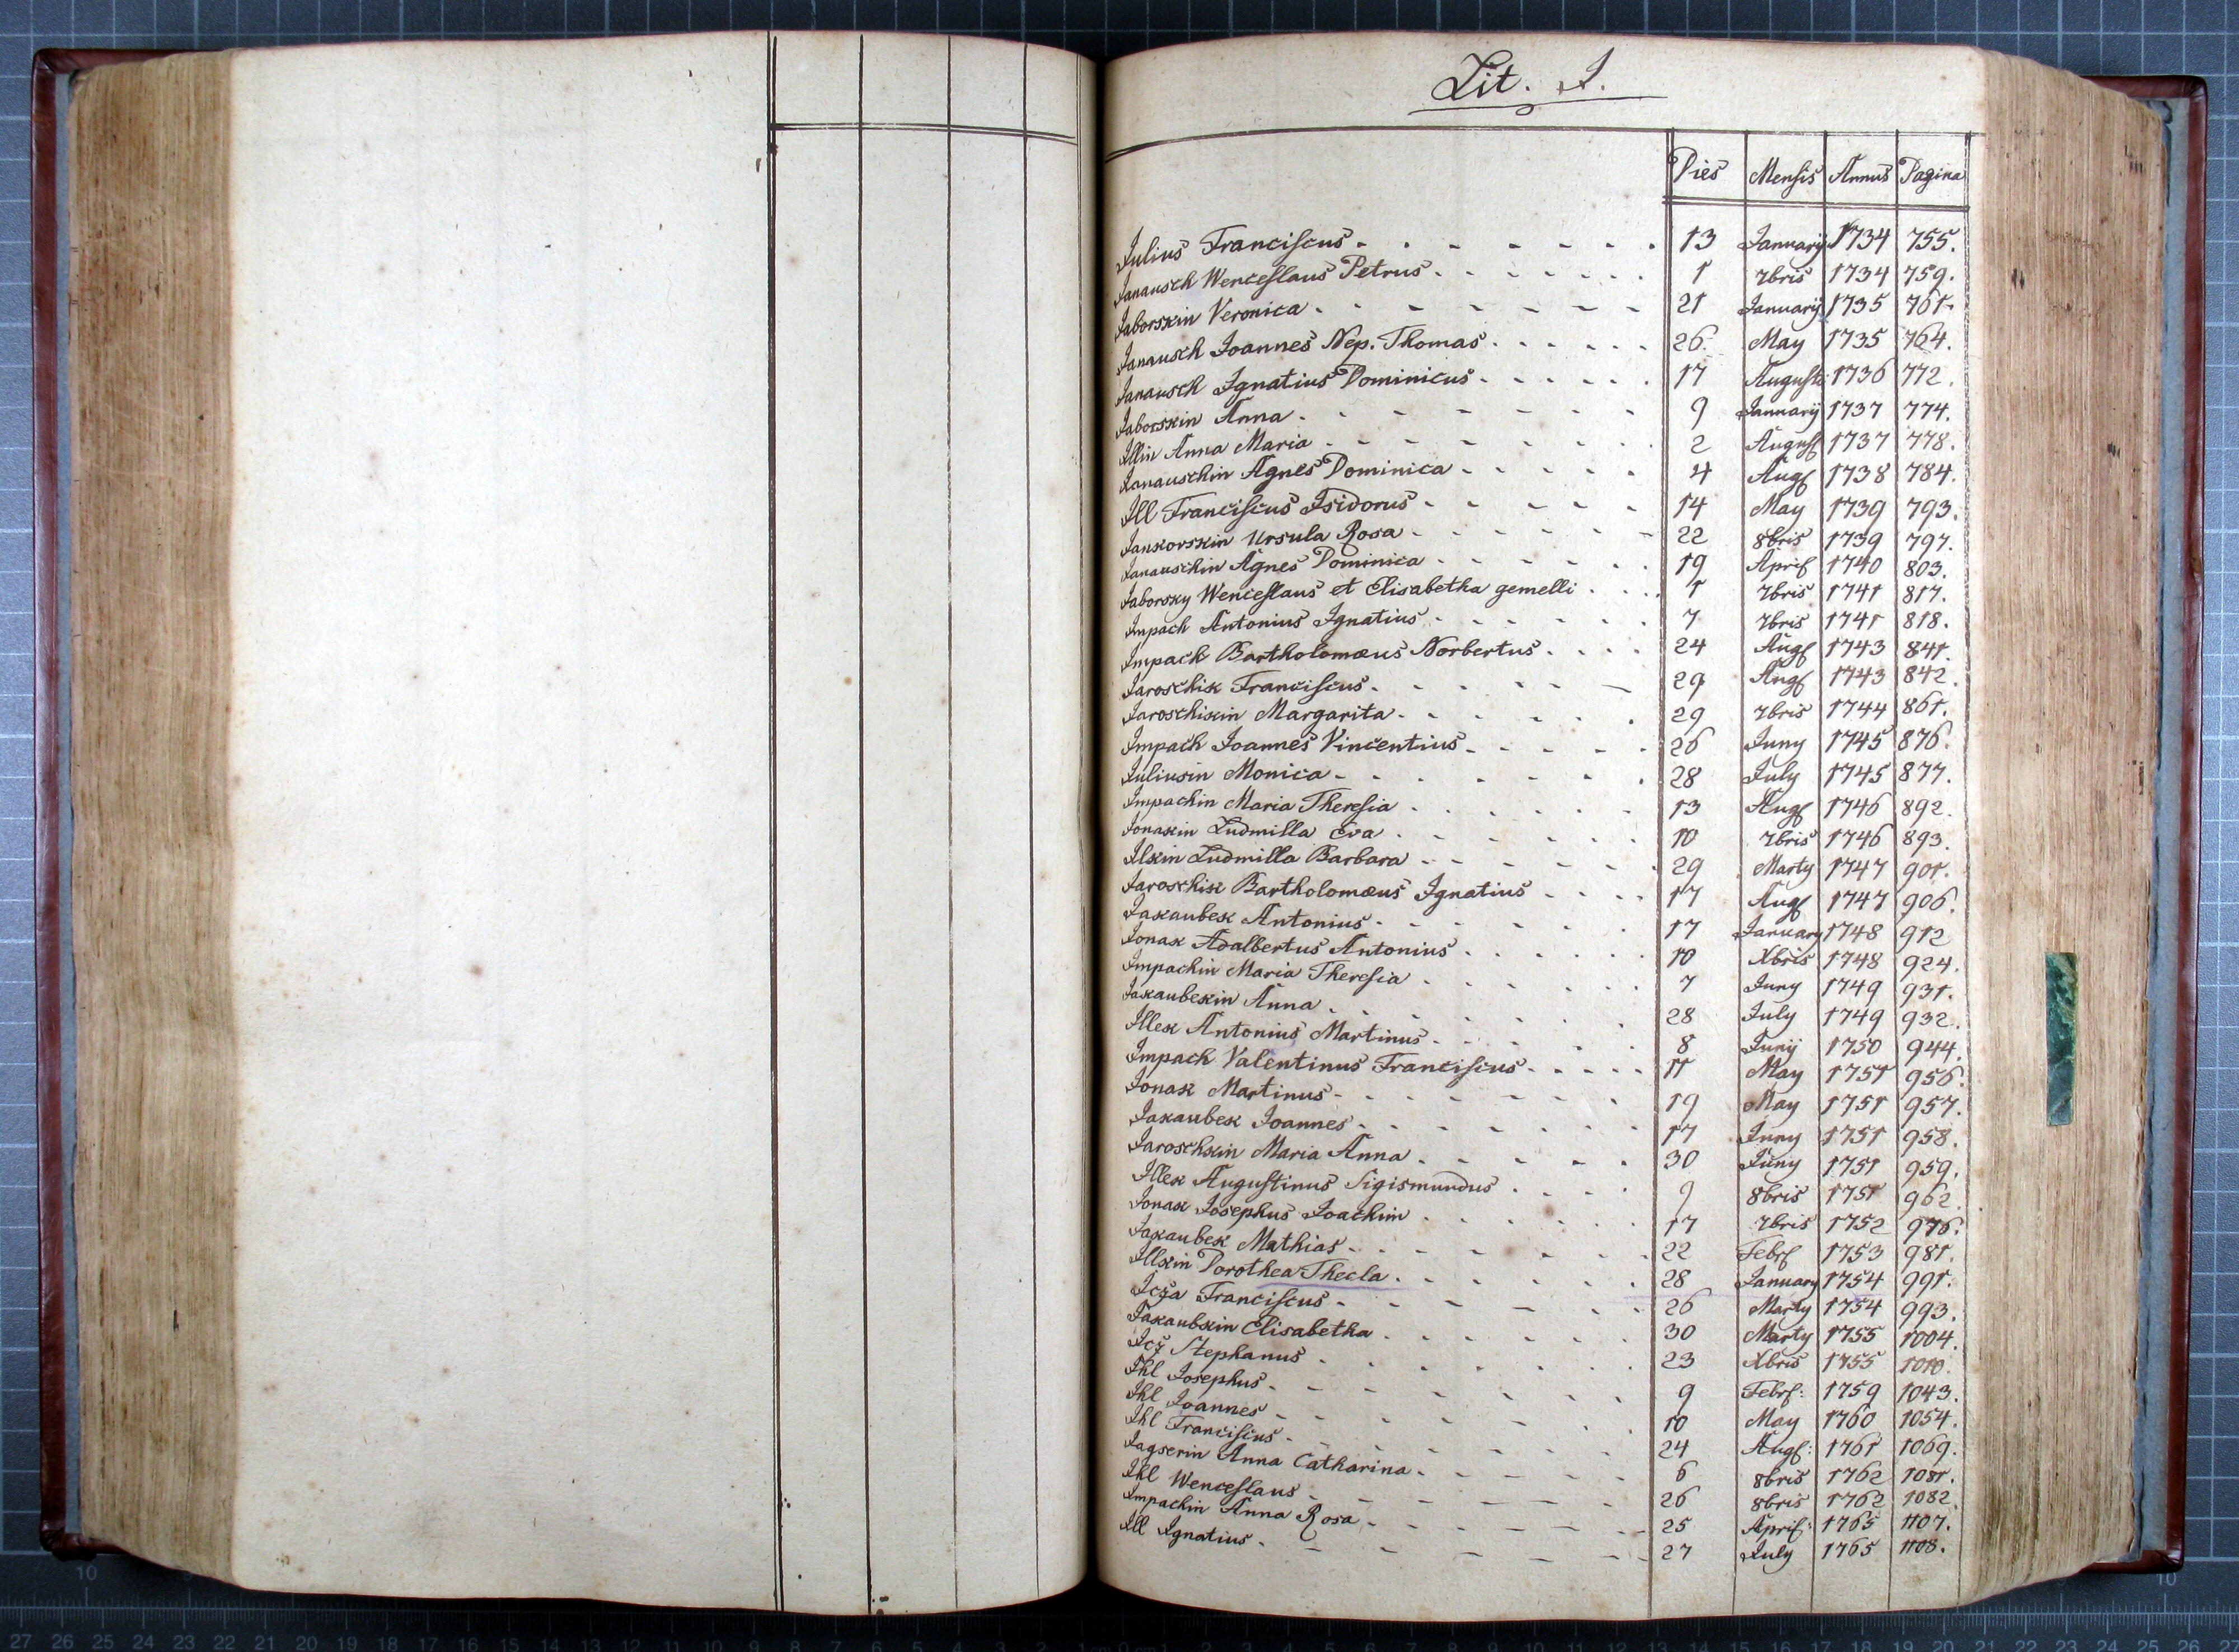 Lit. I.
Dies Mensis Annus Pagina
Julius Franciscus 13 Januarij 1734 755.
Janausch Wenceslaus Petrus 1 7bris 1734 759.
Jaborskin Veronica 21 Januarij 1735 761.
Janausch Joannes Nep. Thomas 26. May 1735 764.
Janausch Ignatius Dominicus 17 Augusti 1736 772.
Jaborskin Anna 9 Januarij 1737 774.
Illin Anna Maria 2 August 1737 778.
Janauschin Agnes Dominica 4 Aug 1738 784.
Ill Franciscus Isidorus 14 May 1739 793.
Jankorskin Ursula Rosa 22 8bris 1739 797.
Janauschin Agnes Dominica 19 April 1740 803.
Jaborsky Wenceslaus et Elisabetha gemelli 1 7bris 1741 817.
Impach Antonius Ignatius 7 7bris 1741 818.
Impach Bartholomæus Norbertus 24 Aug 1743 841.
Jaroschik Franciscus 29 Aug 1743 842.
Jaroschikin Margarita 29 7bris 1744 861.
Impach Joannes Vincentius 26 Juny 1745 876.
Juliusin Monica 28 July 1745 877.
Impachin Maria Theresia 13 Aug 1746 892.
Jonakin Ludmilla Eva 10 7bris 1746 893.
Ilkin Ludmilla Barbara 29 Marty 1747 901.
Jaroschik Bartholomæus Ignatius 17 Aug 1747 906.
Jakaubek Antonius 17 January 1748 912
Jonak Adalbertus Antonius 10 Xbris 1748 924.
Impachin Maria Theresia 7 Juny 1749 931.
Jakaubekin Anna 28 July 1749 932.
Illek Antonius Martinus 8 Junij 1750 944.
Impach Valentinus Franciscus 11 May 1751 956.
Jonak Martinus 19 May 1751 957.
Jakaubek Joannes 17 Juny 1751 958.
Jaroschkin Maria Anna 30 Juny 1751 959.
Illek Augustinus Sigismundus 9 8bris 1751 962
Jonak Josephus Joachim 17 7bris 1752 976.
Jakaubek Mathias 22 Febr 1753 981.
Illkin Dorothea Thecla 28 January 1754 991.
Icża Franciscus 26 Marty 1754 993.
Jakaubkin Elisabetha 30 Marty 1755 1004.
Icż Stephanus 23 Xbris 1755 1010.
Ihl Josephus 9 Febr: 1759 1043.
Ihl Joannes 10 May 1760 1054.
Ihl Franciscus 24 Aug: 1761 1069.
Jagserin Anna Catharina 6 8bris 1762 1081.
Ihl Wenceslaus 26 8bris 1762 1082.
Impachin Anna Rosa 25 April: 1765 1107.
Ill Ignatius 27 July 1765 1108.